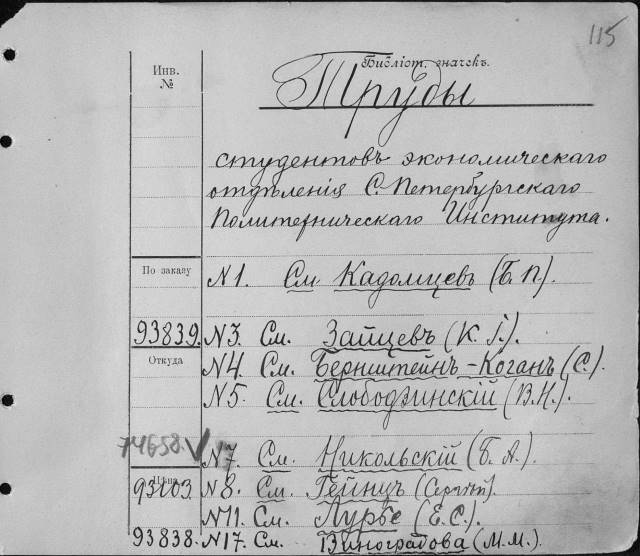 115
Библіот. значекъ.
Инв.
№
Труды
студентовъ экономическаго
отдѣленія С. Петербургскаго
Политехническаго Института.
По заказу
N1. См Кадомцевъ (Б. П).
93839. N3. См. Зайцевъ (К. І.).
Откуда
N4 См. Бернштейнъ-Коганъ (С.).
N5. См. Слободзинскій (В. Н.).
74658. V N7. См. Никольскій (Б. А.)
Цѣна
93103. N8. См. Гейнцъ (Сергѣй).
N11. См. Лурье (Е. С.).
93838. N17. См. Виноградова (М. М.).